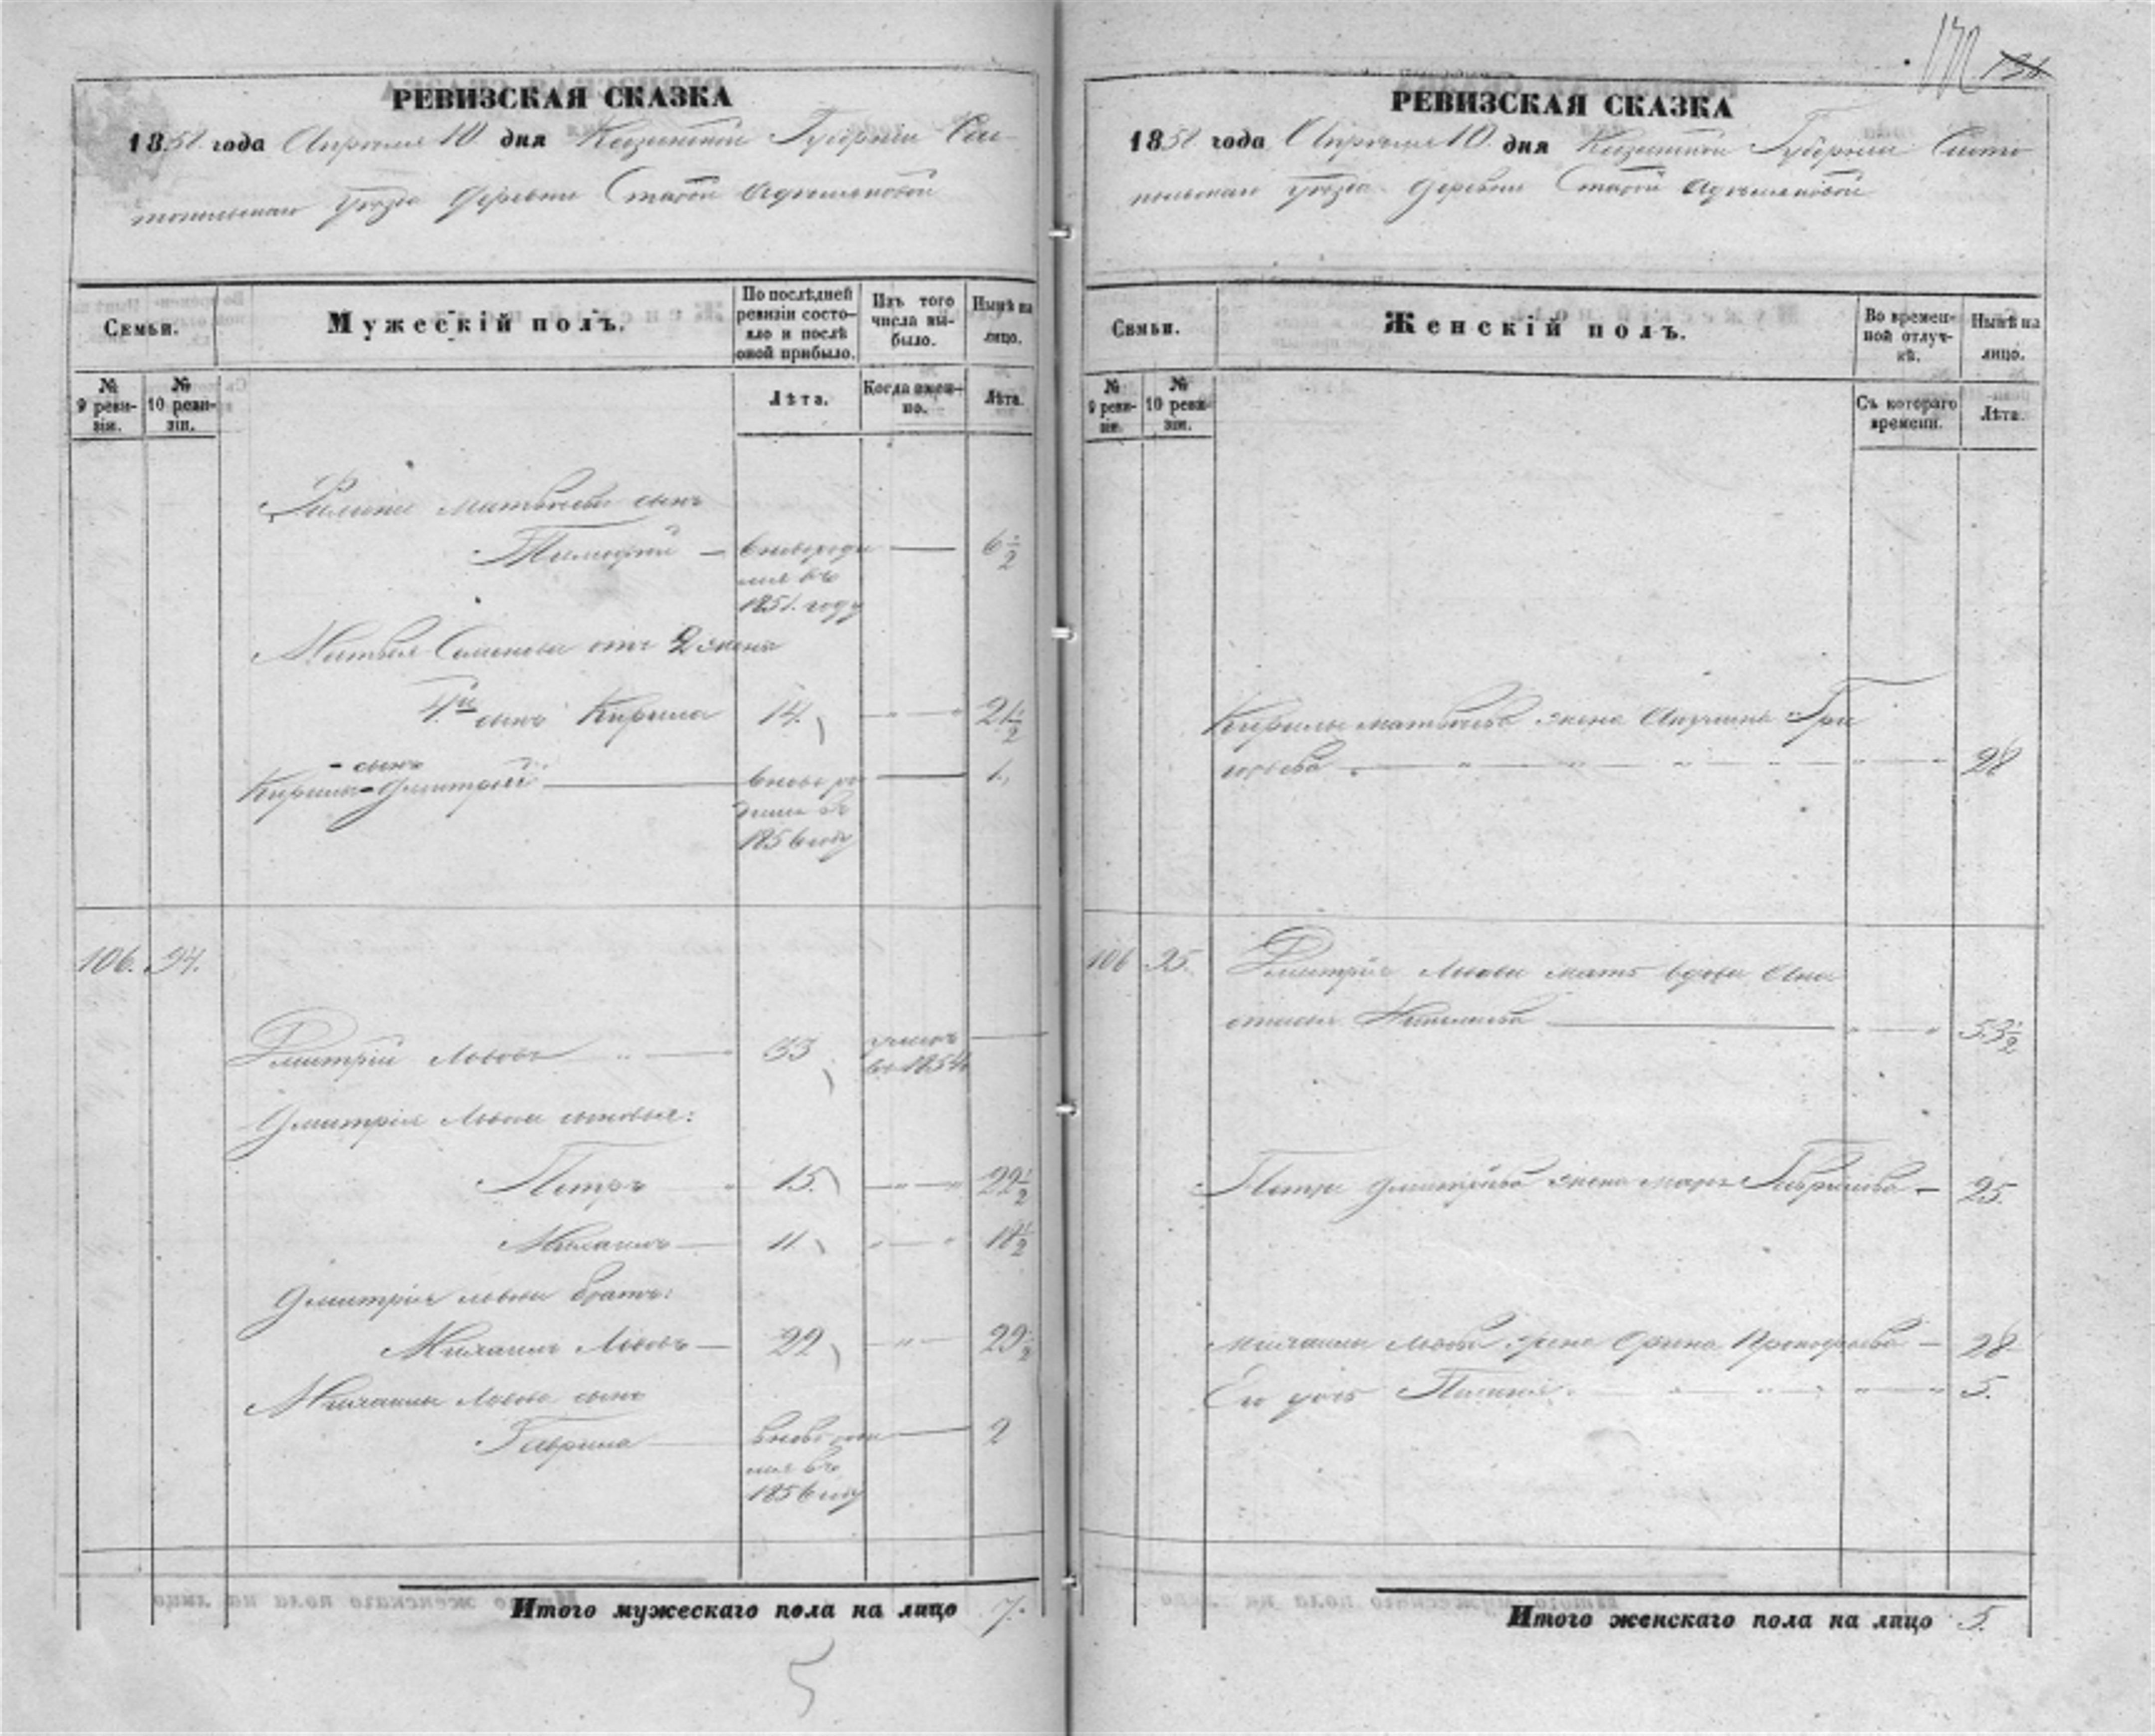 РЕВИЗСКАЯ СКАЗКА
1858 года Апреля 10 дня Казанской Губернии Чис
топольскаго уезда деревни Старой Адамшиновой
Семьи.
Мужескій полъ.
По послѣдней ревизіи состояло и послѣ оной прибыло.
Изъ того числа выбыло.
Нынѣ на лицо.
№ 9 ревизіи.
№ 10 ревизіи.
Лѣта.
Когда именно.
Лѣта.
Матвѣева сынъ
Тимофей — вновь роди 6 1/2
лся въ
1851 году
Матвея Семенова отъ 2 жены
4й сынъ Кирила 14 21 1/2
сынъ
Кирилы Дмитрей вновь ро 1
дился въ
1856 году
106. 94.
Дмитрій Львовъ 33 умеръ
въ 1854
Дмитрія Львова сыновья:
Петръ 15 22 1/2
Михаилъ 11 18 1/2
Дмитрія Львова братъ:
Михаилъ Львовъ 22 29 1/2
Михаилы Львова сынъ
Гаврила вновь роди 2
лся въ
1856 году
Итого мужескаго пола на лицо 7.
5
136
РЕВИЗСКАЯ СКАЗКА
1858 года Апреля 10 дня Казанской Губернии Чисто
польскаго уезда деревни Старой
Семьи.
Женскій полъ.
Во временной отлучкѣ.
Нынѣ на лицо.
№ 9 ревизіи.
№ 10 ревизіи.
Съ котораго времени.
Лѣта.
Кирилы Матвѣева жена Акулина Гри
горьева 28
106 95.
Дмитрія Львова мать вдова Ана
стасья 53 1/2
Петра Дмитріева жена Марья Гаврилова — 25
Михаилы Львова жена Орина Прокофьева — 28
Его дочь 5.
Итого женскаго пола на лицо 5.